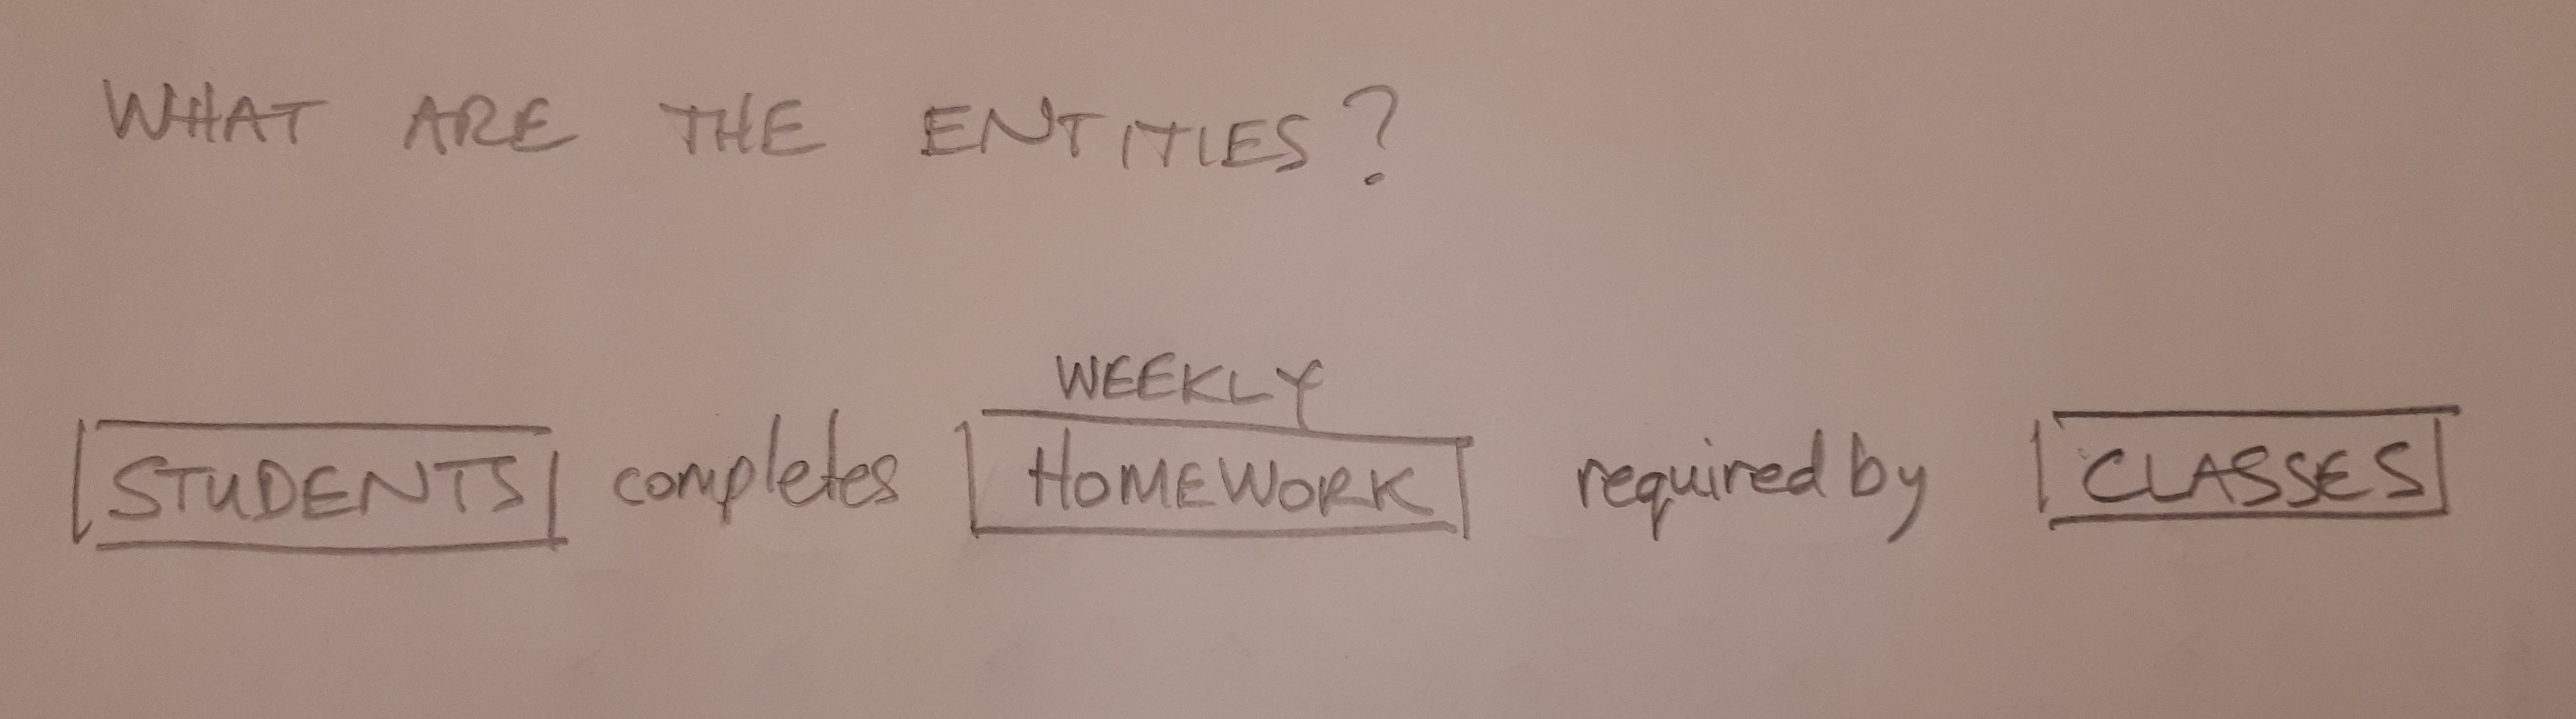 WHAT ARE THE ENTITIES?
WEEKLY
STUDENTS completes HOMEWORK required by CLASSES